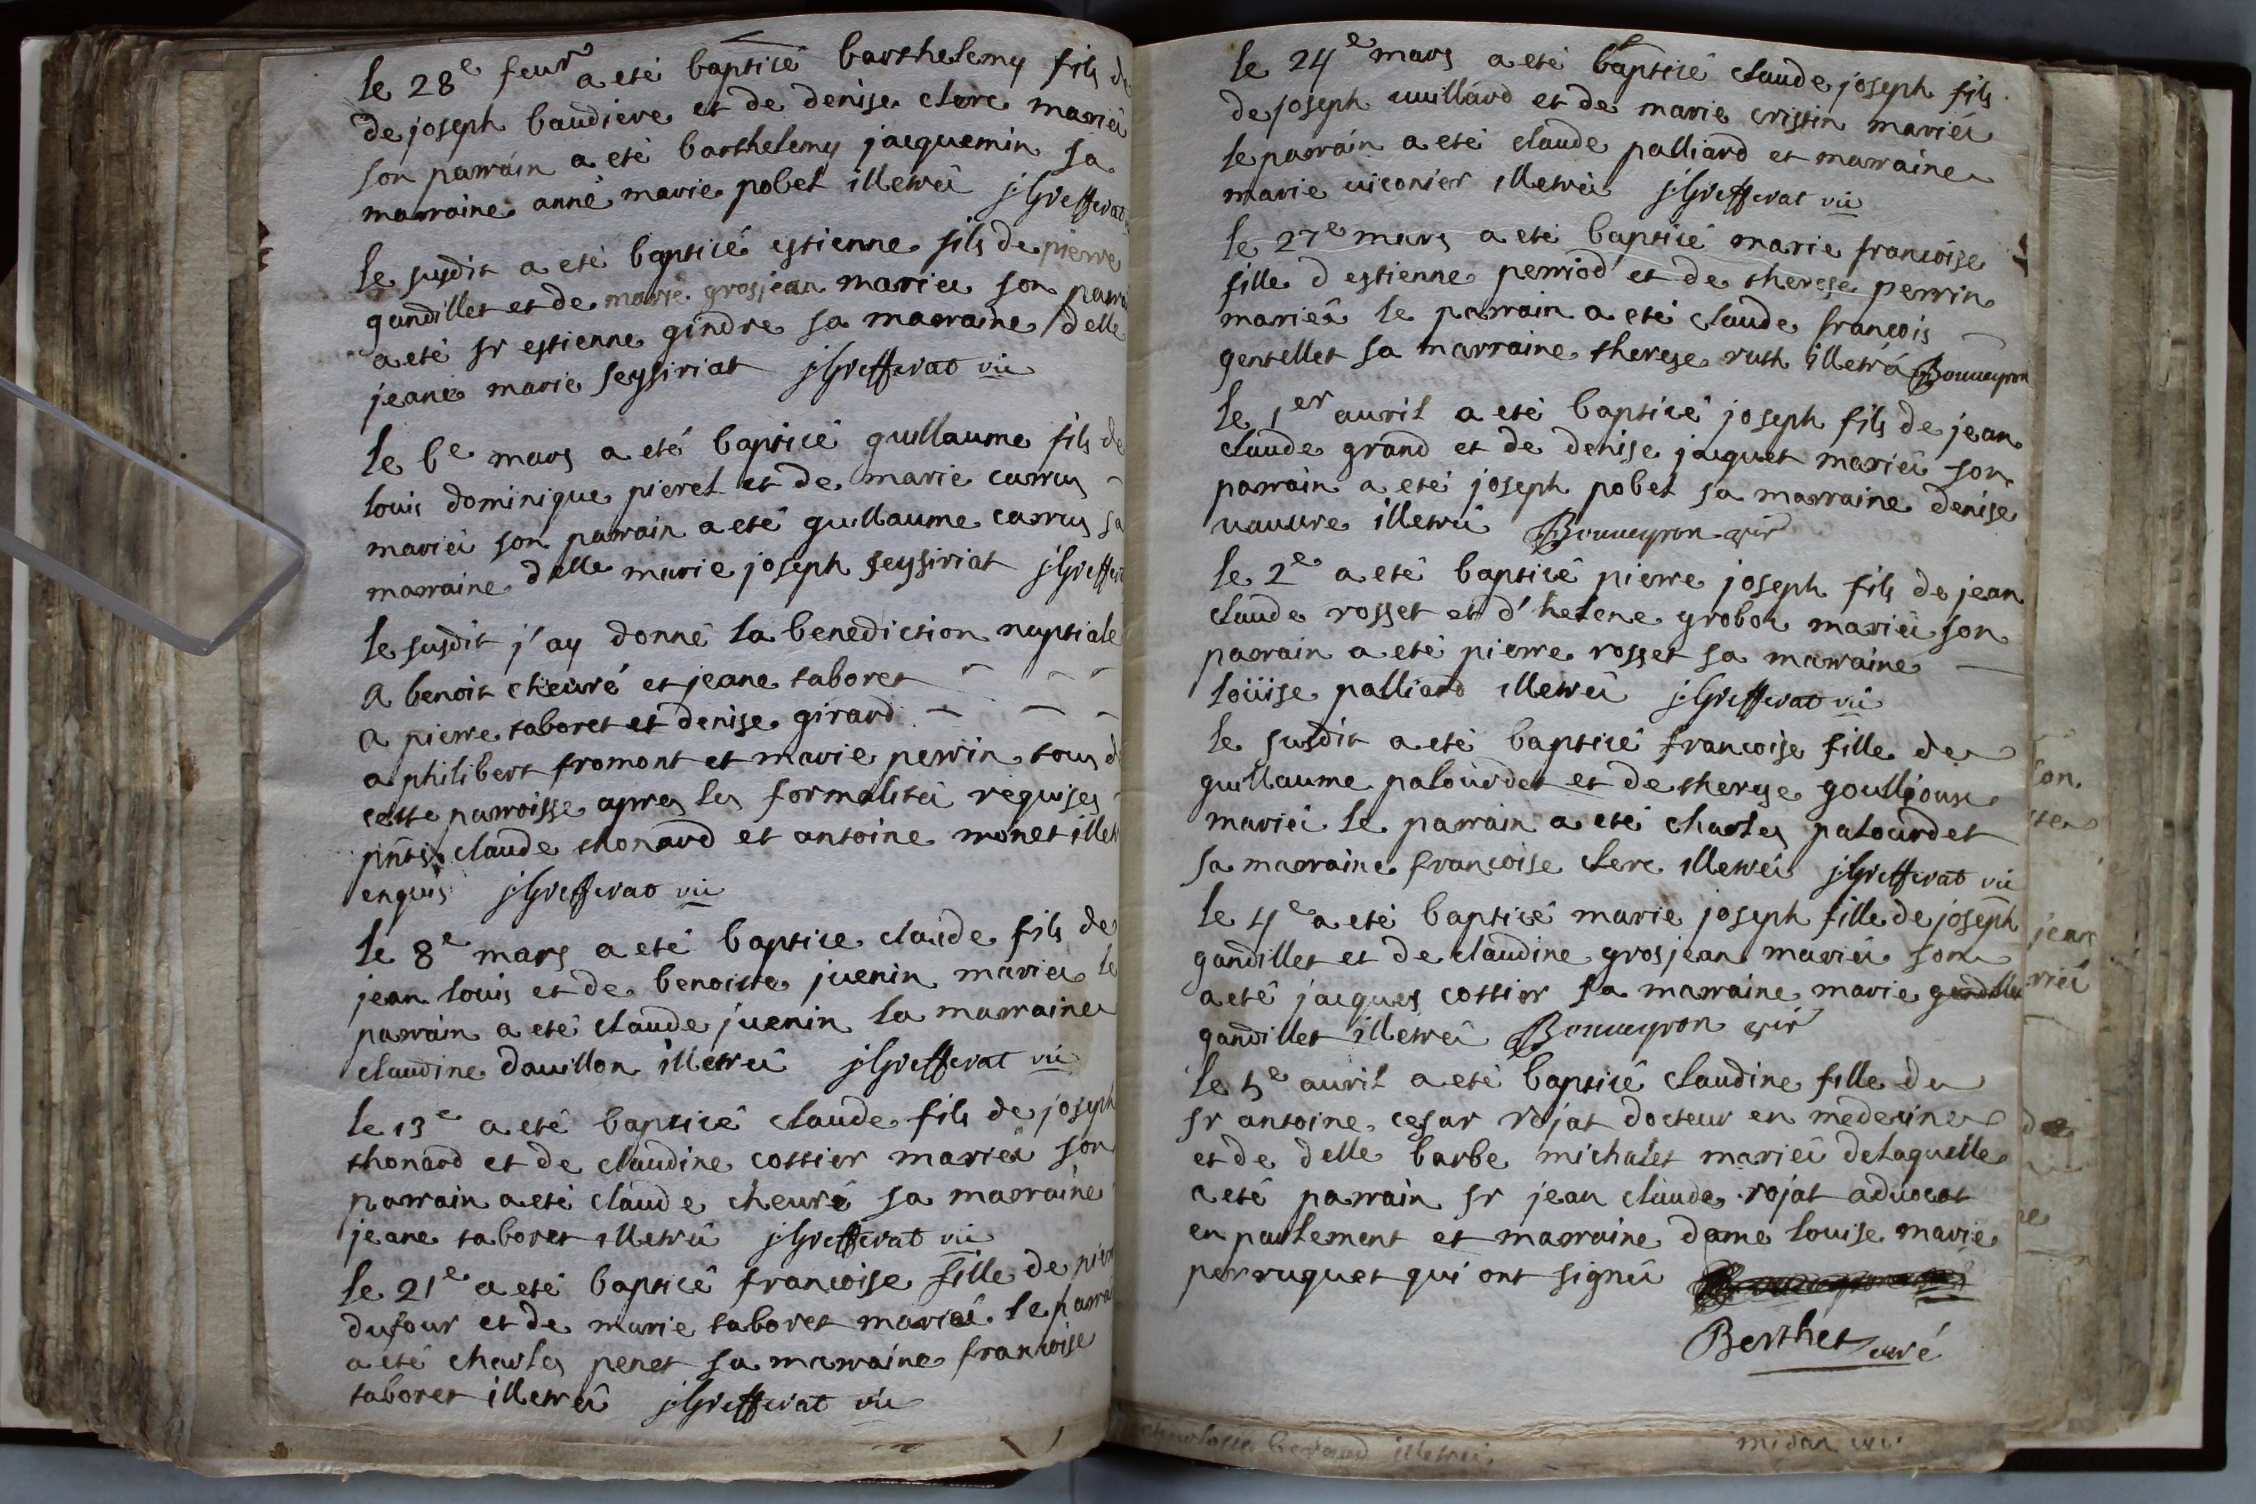 le 28e feur a eté baptisé barthelemy fils de
de joseph baudiere et de denise clerc mariés
son parrain a eté barthelemy jacquemin sa
marraine anne marie pobel illetrés j Grefferat
le susdit a eté baptisé estienne fils de pierre
gandillet et de marie grosjean mariés son parrain
a eté sr estienne gindre sa marraine delle
jeane marie seysiriat j Grefferat vic
le 6e mars a eté baptisé guillaume fils de
louis dominique pierel et de marie carrus
mariés son parrain a eté guillaume carrus sa
marraine delle marie joseph seysiriat j Greffer
le susdit j'ay donné la benediction nuptiale
a benoit cheuré et jeane taboret
a pierre taboret et denise girard
a philibert fromont et marie perrin tous de
cette parroisse apres les formalités requises
pnts claude thonard et antoine monet illet
enquis j Grefferat vic
le 8e mars a eté baptise claude fils de
jean louis et de benoiste juenin mariés le
parrain a eté claude juenin la marraine
claudine dauillon illetrés j Grefferat vic
le 13e a eté baptisé claude fils de joseph
thonard et de claudine cottier mariés son
parrain a eté claude cheuré sa marraine
jeane taboret illetrés j Grefferat vic
le 21e a eté baptisé francoise fille de pierr
dufour et de marie taboret mariés le parrai
a eté charles penet sa marraine francoise
taboret illetrés j Grefferat vic
le 24e mars a eté baptisé claude joseph fils
de joseph uuillard et de marie cristin mariés
le parrain a eté claude palliard et marraine
marie uiconier illetrés j Grefferat vic
le 27e mars a eté baptisé marie francoise
fille d estienne perriod et de therese perrin
mariés le parrain a eté claude francois
gentellet sa marraine therese ruth illetrés Bouueyron
le 1er auril a eté baptisé joseph fils de jean
claude grand et de denise jaquet mariés son
parrain a eté joseph pobel sa marraine denise
uauure illetrés Bouueyron vic
le 2e a eté baptisé pierre joseph fils de jean
claude rosset et d'helene grobon mariés son
parrain a eté pierre rosset sa marraine
loüise palliard illetrés j Grefferat vic
le susdit a eté baptisé francoise fille de
guillaume palourdet et de therese goullioux
mariés le parrain a eté charles palourdet
sa marraine francoise clerc illetrés j Grefferat vic
le 4e a eté baptisé marie joseph fille de joseph
gandillet et de claudine grosjean mariés son
a eté jacques cottier sa marraine marie gandillet
gandillet illetrés Bouueyron vic
le 5e auril a eté baptisé claudine fille de
sr antoine cesar rojat docteur en medecine
et de delle barbe michalet mariés delaquelle
a eté parrain sr jean claude rojat aduocat
en parlement et marraine dame louise marie
perruquet qui ont signés
Berthet curé